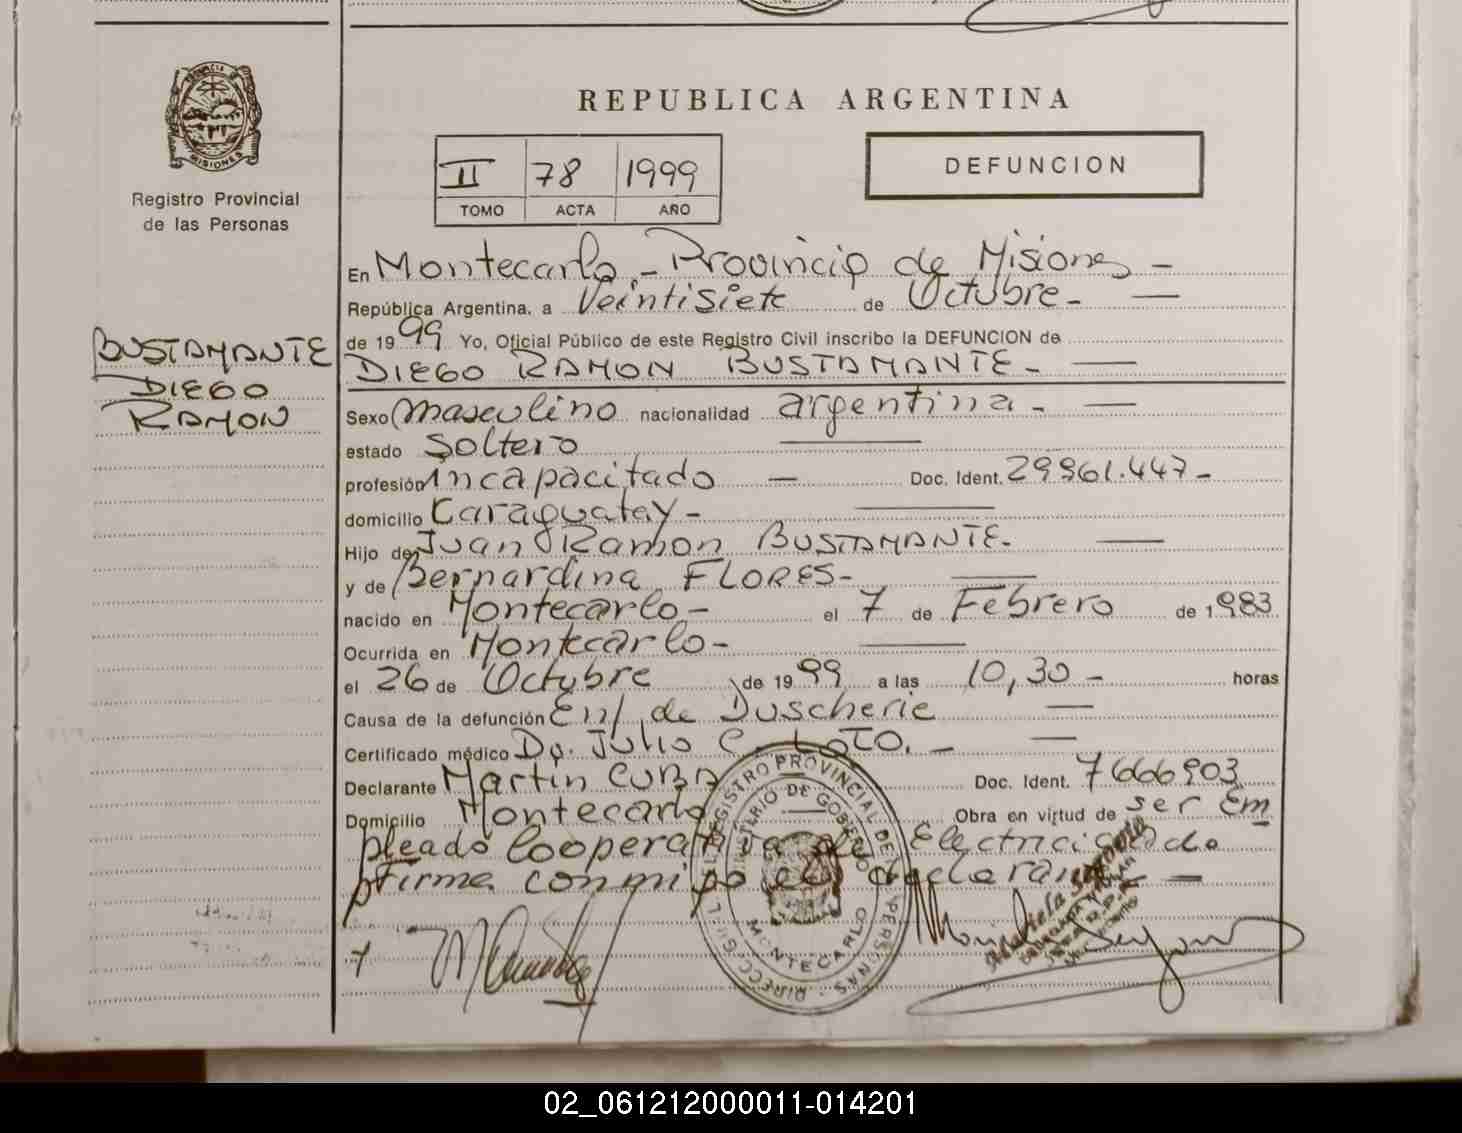 REPUBLICA ARGENTINA
II 78 1999
TOMO ACTA AÑO
DEFUNCION
PROVINCIA DE MISIONES
Registro Provincial
de las Personas
BUSTAMANTE
DIEGO
RAMON
En Montecarlo - Provincia de Misiones -
República Argentina, a Veintisiete de Octubre -
de 1999 Yo, Oficial Público de este Registro Civil inscribo la DEFUNCION de
DIEGO RAMON BUSTAMANTE -
Sexo masculino nacionalidad argentina -
estado Soltero
profesión incapacitado - Doc. Ident. 29961.447 -
domicilio Caraguatay -
Hijo de Juan Ramon BUSTAMANTE -
y de Bernardina FLORES -
nacido en Montecarlo - el 7 de Febrero de 1983
Ocurrida en Montecarlo -
el 26 de Octubre de 1999 a las 10,30 - horas
Causa de la defunción Enf. de Duscherie
Certificado médico Dr. Julio C. LOTO. -
Declarante Martin CUBA Doc. Ident. 7666903
Domicilio Montecarlo Obra en virtud de ser Em
pleado Cooperativa de Electricidad do
firma conmigo el declarante -
DIRECC. GRAL. REGISTRO PROVINCIAL DE LAS PERSONAS
MINISTERIO DE GOBIERNO
MONTECARLO
02_061212000011-014201